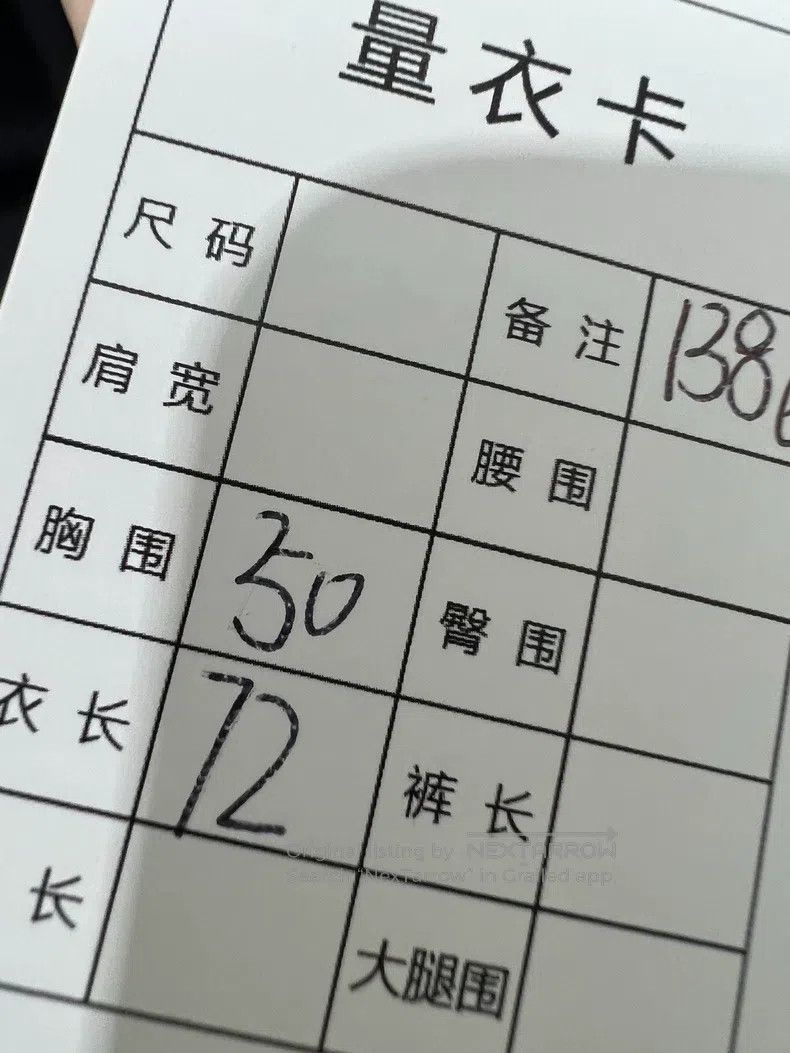 量衣卡
尺码
备注 138
肩宽
腰围
胸围 50
臀围
衣长 72
裤长
长
大腿围
Original listing by NEXTARROW
Search "NexTarrow" in Grailed app.